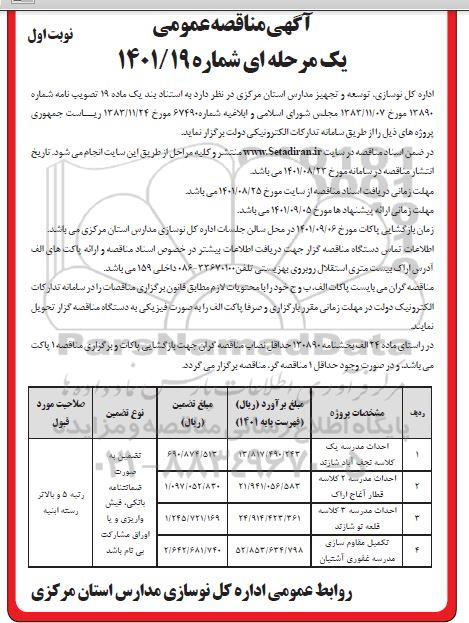 آگهی مناقصه عمومی
نوبت اول
یک مرحله ای شماره ۱۴۰۱/۱۹
اداره کل نوسازی، توسعه و تجهیز مدارس استان مرکزی در نظر دارد به استناد بند یک ماده ۱۹ تصویب نامه شماره
۱۳۸۹۰ مورخ ۱۳۸۳/۱۱/۰۷ مجلس شورای اسلامی و ابلاغیه شماره ۶۷۴۹۰ مورخ ۱۳۸۳/۱۱/۲۴ ریاست جمهوری
پروژه های ذیل را از طریق سامانه تدارکات الکترونیکی دولت برگزار نماید.
در ضمن اسناد مناقصه در سایت www.Setadiran.ir منتشر و کلیه مراحل از طریق این سایت انجام می شود. تاریخ
انتشار مناقصه در سامانه مورخ ۱۴۰۱/۰۸/۲۳ می باشد.
مهلت زمانی دریافت اسناد مناقصه از سایت مورخ ۱۴۰۱/۰۸/۲۵ می باشد.
مهلت زمانی ارائه پیشنهاد ها مورخ ۱۴۰۱/۰۹/۰۵ می باشد.
زمان بازگشایی پاکات مورخ ۱۴۰۱/۰۹/۰۶ در محل سالن جلسات اداره کل نوسازی مدارس استان مرکزی می باشد.
اطلاعات تماس دستگاه مناقصه گزار جهت دریافت اطلاعات بیشتر در خصوص اسناد مناقصه و ارائه پاکت های الف
آدرس اراک بیست متری استقلال روبروی بهزیستی تلفن ۳۳۶۷۰۱۰۰-۰۸۶ داخلی ۱۵۹ می باشد.
مناقصه گران می بایست پاکات الف، ب و ج خود را با محتویات لازم مطابق قانون برگزاری مناقصات را در سامانه تدارکات
الکترونیک دولت در مهلت زمانی مقرر بارگزاری و صرفا پاکت الف را به صورت فیزیکی به دستگاه مناقصه گزار تحویل
نمایند.
در راستای ماده ۲۴ الف بخشنامه ۱۳۰۸۹۰ حداقل نصاب مناقصه گران جهت بازگشایی پاکات و برگزاری مناقصه ۱ پاکت
می باشد. و در صورت وجود حداقل ۱ مناقصه گر، مناقصه برگزار می گردد.
ردیف مشخصات پروژه مبلغ برآورد (ریال) (فهرست پایه ۱۴۰۱) مبلغ تضمین (ریال) نوع تضمین صلاحیت مورد قبول
۱ احداث مدرسه یک کلاسه نجف آباد شازند ۱۳/۸۱۷/۴۹۰/۲۴۳ ۶۹۰/۸۷۴/۵۱۳
۲ احداث مدرسه ۲ کلاسه قطار آغاج اراک ۲۱/۹۴۱/۰۵۶/۵۸۳ ۱/۰۹۷/۰۵۲/۸۳۰
۳ احداث مدرسه ۳ کلاسه قلعه نو شازند ۲۴/۹۱۴/۴۲۳/۳۶۱ ۱/۲۴۵/۷۲۱/۱۶۹
۴ تکمیل مقاوم سازی مدرسه غفوری آشتیان ۵۲/۸۵۳/۶۳۴/۷۹۸ ۲/۶۴۲/۶۸۱/۷۴۰
تضمین به صورت ضمانتنامه بانکی، فیش واریزی و یا اوراق مشارکت بی نام باشد
رتبه ۵ و بالاتر رسته ابنیه
روابط عمومی اداره کل نوسازی مدارس استان مرکزی